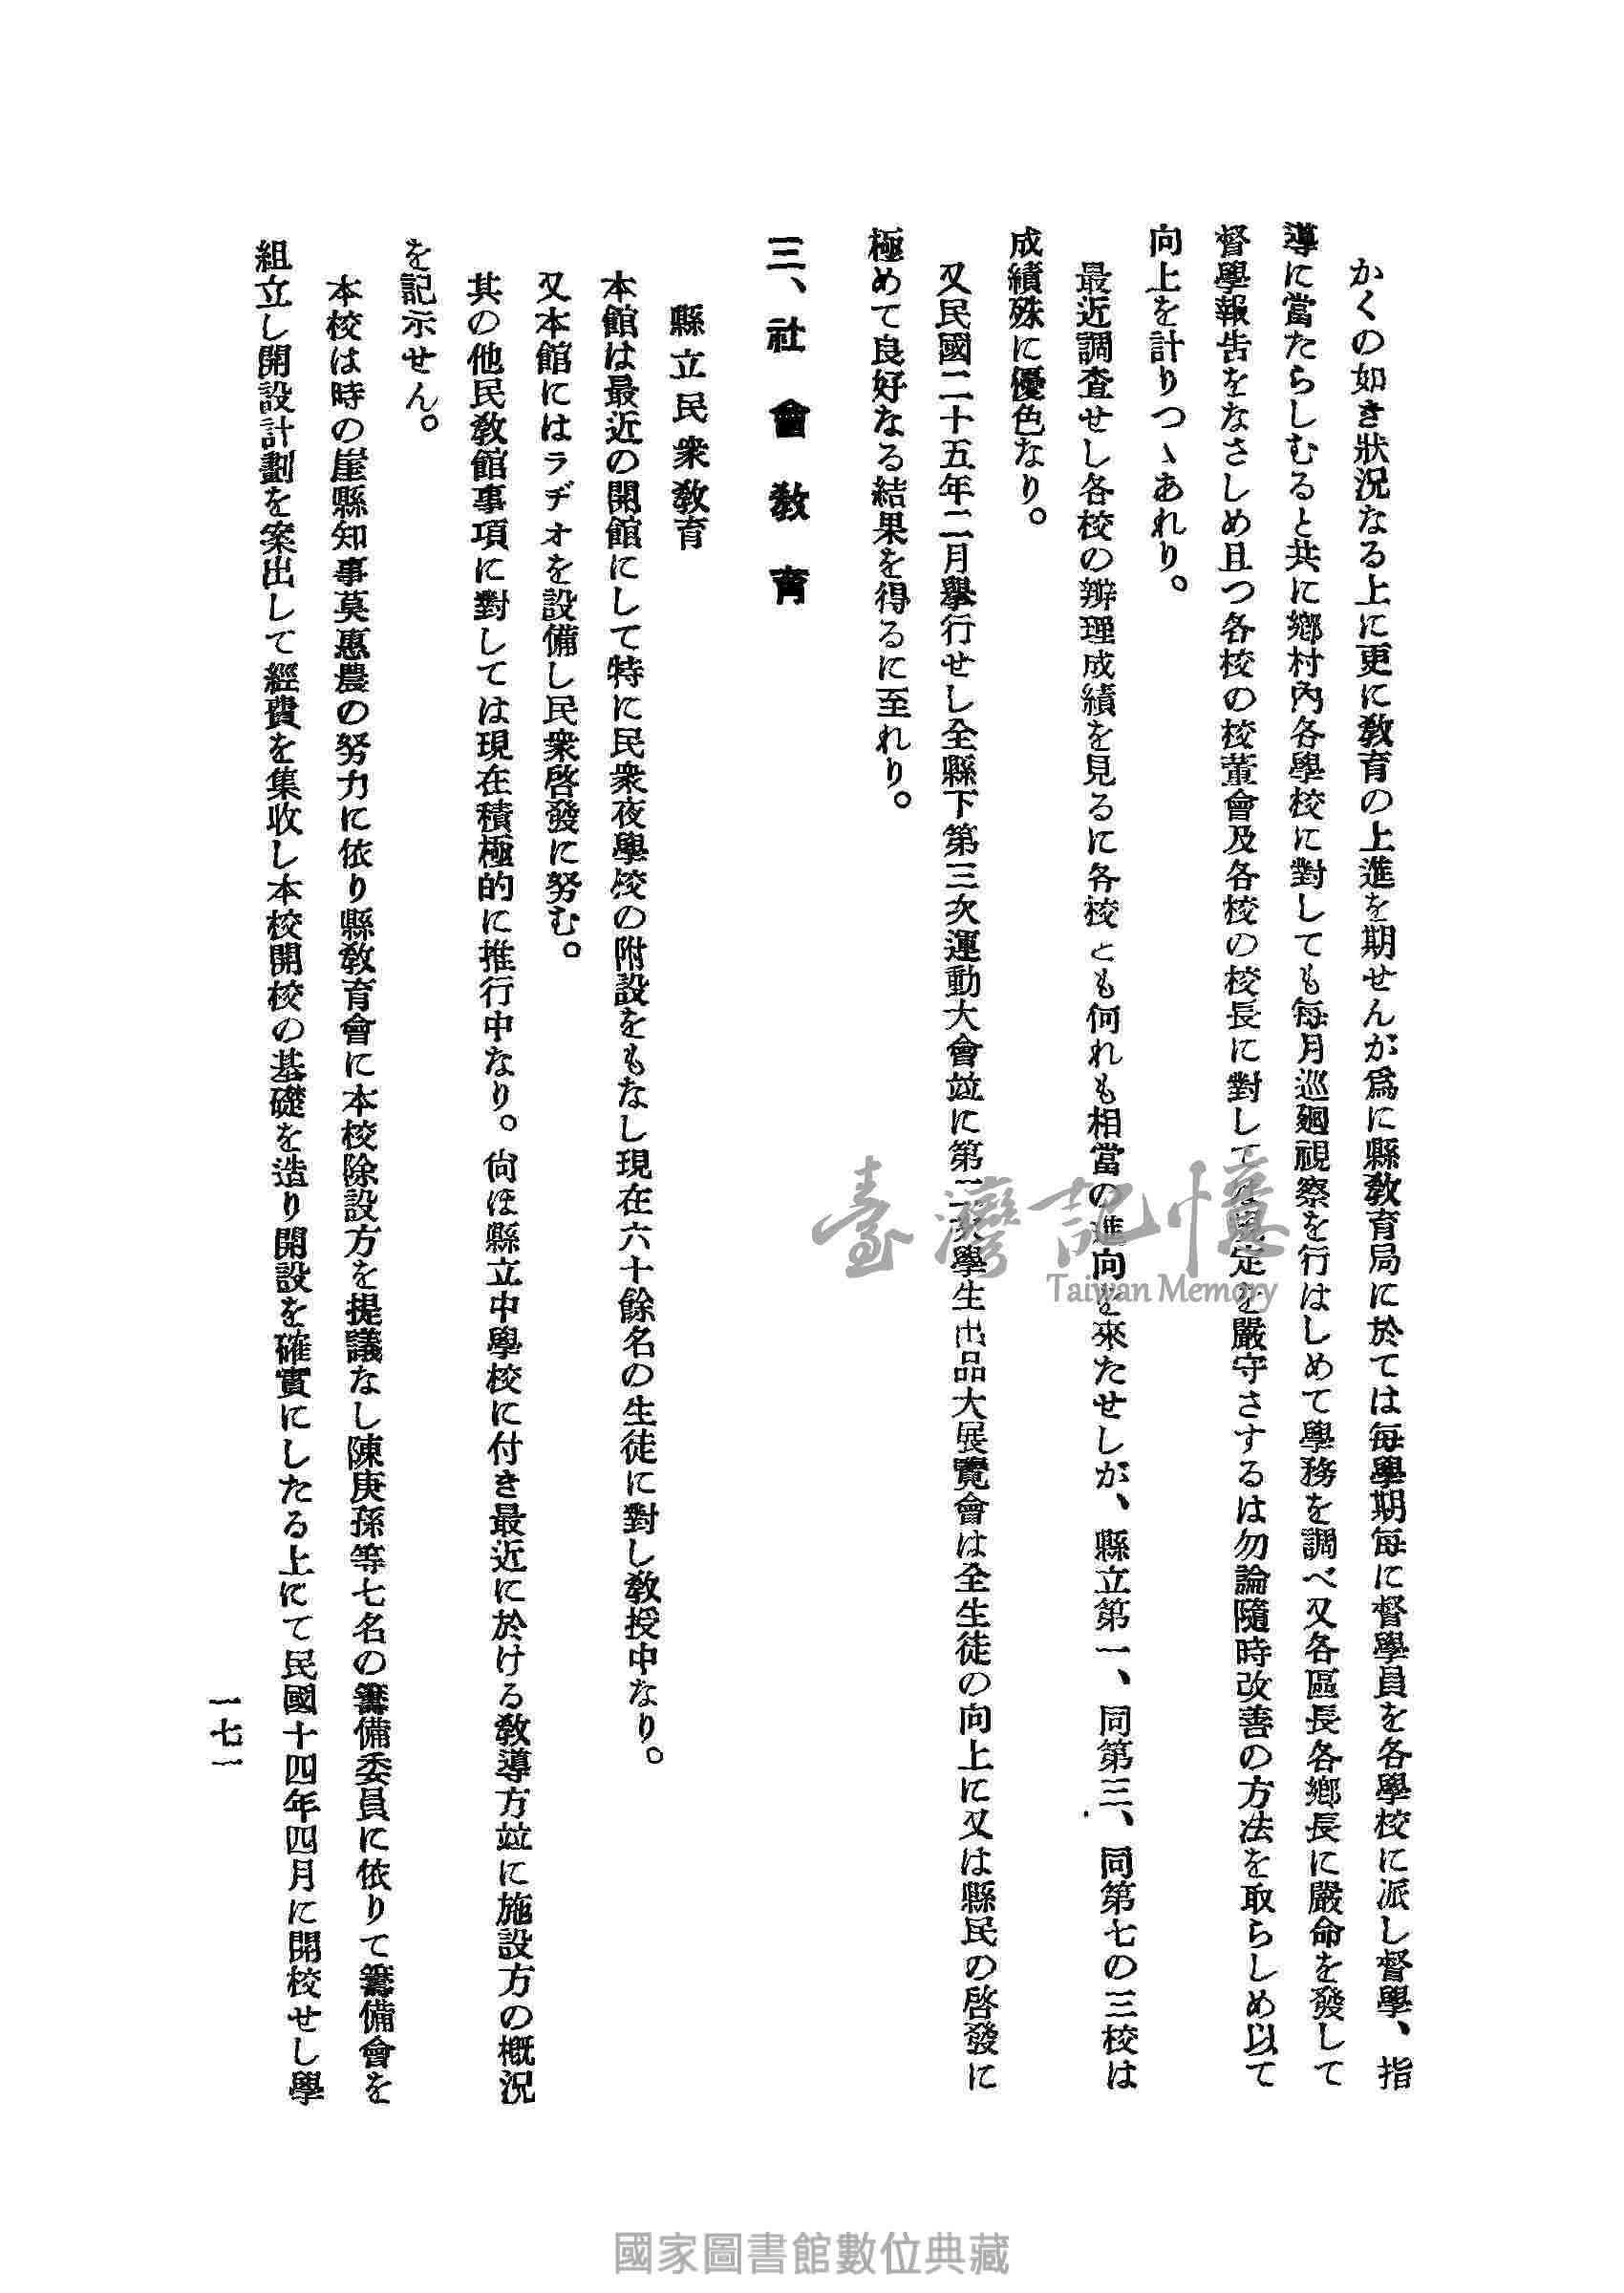 かくの如き狀況なる上に更に敎育の上進を期せんが爲に縣敎育局に於ては每學期每に督學員を各學校に派し督學、指
導に當たらしむると共に鄕村內各學校に對しても每月巡廻視察を行はしめて學務を調べ又各區長各鄕長に嚴命を發して
督學報告をなさしめ且つ各校の校董會及各校の校長に對して定を嚴守さするは勿論隨時改善の方法を取らしめ以て
向上を計りつゝあれり。
最近調査せし各校の辦理成績を見るに各校とも何れも相當の進向を來たせしが、縣立第一、同第三、同第七の三校は
成績殊に優色なり。
又民國二十五年二月擧行せし全縣下第三次運動大會竝に第二次學生出品大展覽會は全生徒の向上に又は縣民の啓發に
極めて良好なる結果を得るに至れり。
三、社會敎育
縣立民衆敎育
本館は最近の開館にして特に民衆夜學校の附設をもなし現在六十餘名の生徒に對し敎授中なり。
又本館にはラヂオを設備し民衆啓發に努む。
其の他民敎館事項に對しては現在積極的に推行中なり。尙ほ縣立中學校に付き最近に於ける敎導方竝に施設方の槪況
を記示せん。
本校は時の崖縣知事莫惠農の努力に依り縣敎育會に本校除設方を提議なし陳庚孫等七名の籌備委員に依りて籌備會を
組立し開設計劃を案出して經費を集收し本校開校の基礎を造り開設を確實にしたる上にて民國十四年四月に開校せし學
一七一
臺灣記憶
Taiwan Memory
國家圖書館數位典藏